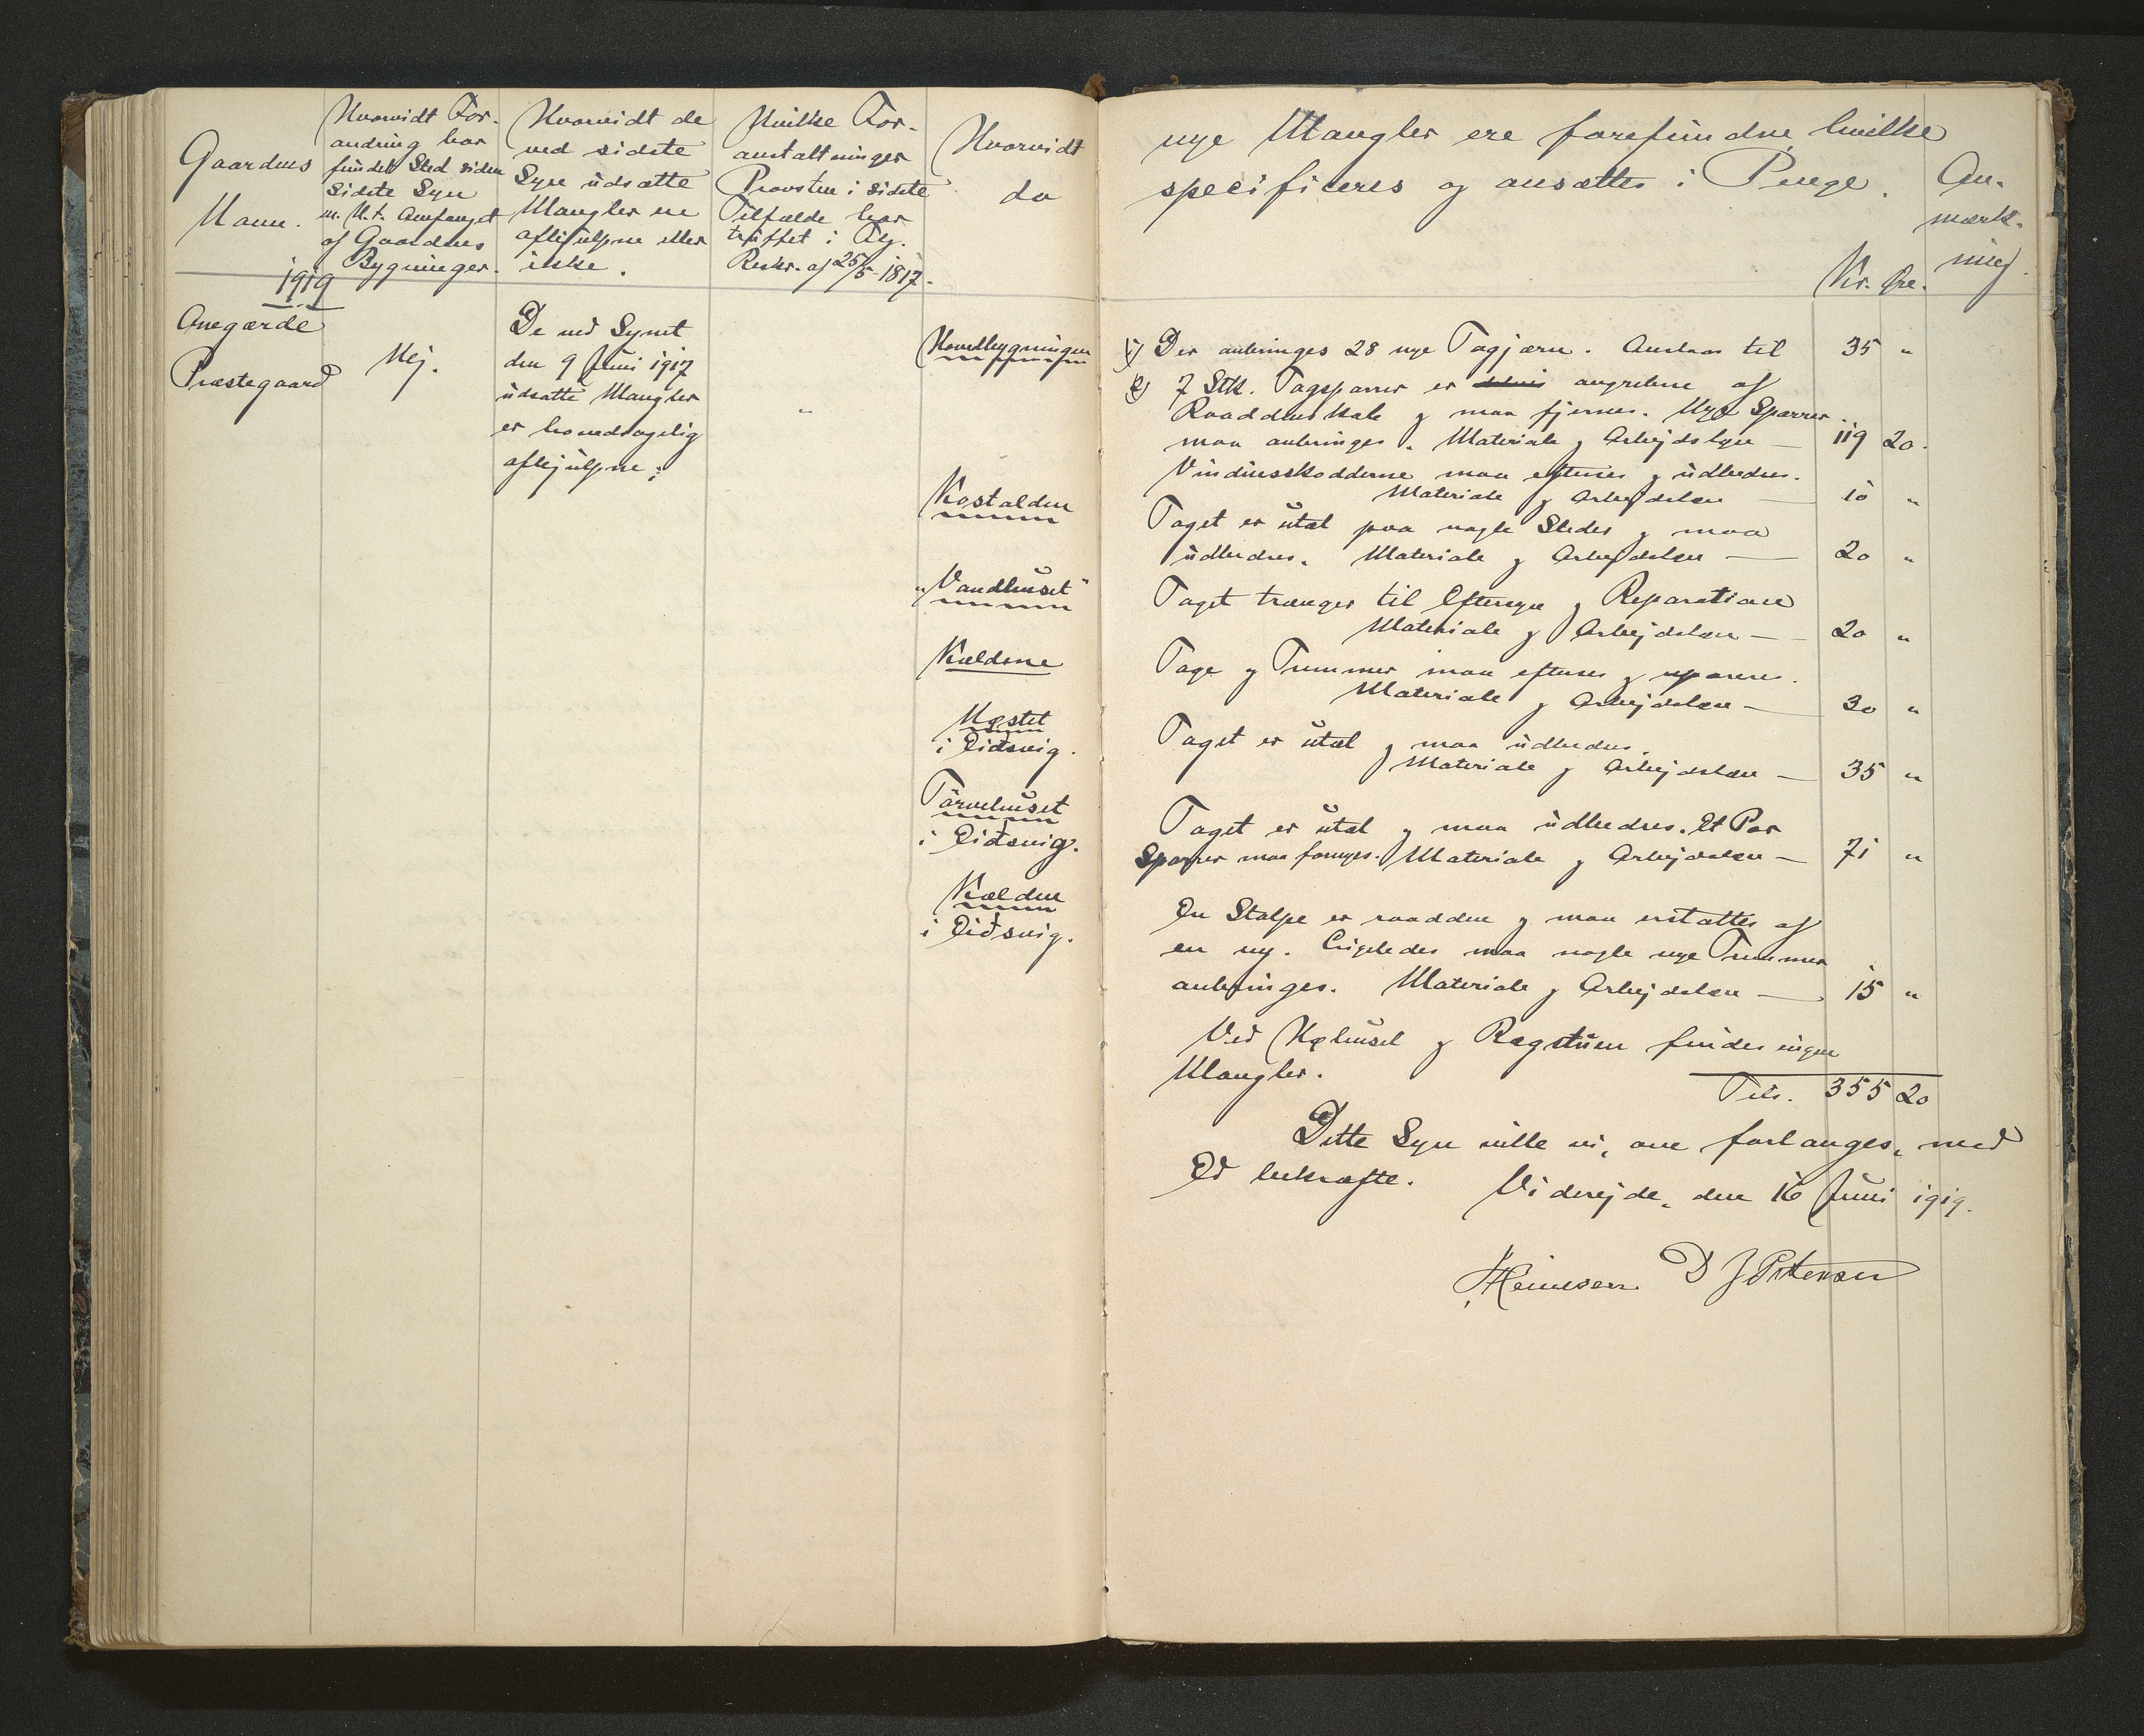 Gaardens
Navn.
Hvorvidt For-
andring har
fundet Sted siden
sidste Syn
m. H. t. Omfanget
af Gaardens
Bygninger.
Hvorvidt de
ved sidste
Syn udsatte
Mangler ere
afhjulpne eller
ikke.
Hvilke For-
anstaltninger
Provsten i sidste
Tilfælde har
truffet i Flg.
Reskr. af 25/5 1817.
Hvorvidt
da
1919
Onegærde
Præstegaard
Nej.
De ved Synet
den 9 Juni 1917
udsatte Mangler
er hovedsagelig
afhjulpne;
"
Hovedbygningen
Kostalden
"Vandhuset"
Kældrene
Nøstet
i Eidsvig.
Tørvehuset
i Eidsvig.
Kælderen
i Eidsvig.
nye Mangler ere forefundne, hvilke
specificeres og ansættes i Penge.
An-
mærk-
ning.
Kr. Øre.
1) Der anbringes 28 nye Tagjærn. Anslaas til 35 "
2) 7 Stk. Tagsparrer er angrebne af
Raaddenskab og maa fjernes. Nye Sparrer
maa anbringes. Materiale og Arbejdsløn — 119 20.
Vinduesskodderne maa efterses og udbedres.
Materiale og Arbejdsløn — 10 "
Taget er utæt paa nogle Steder og maa
udbedres. Materiale og Arbejdsløn — 20 "
Taget trænger til Eftersyn og Reparation
Materiale og Arbejdsløn — 20 "
Tage og Tømmer maa efterses og repareres.
Materiale og Arbejdsløn — 30 "
Taget er utæt og maa udbedres.
Materiale og Arbejdsløn — 35 "
Taget er utæt og maa udbedres. Et Par
Sparrer maa fornyes. Materiale og Arbejdsløn — 71 "
En Stolpe er raadden og maa erstattes af
en ny. Ligeledes maa nogle nye Tømmer
anbringes. Materiale og Arbejdsløn — 15 "
Ved Høhuset og Røgstuen findes ingen
Mangler.
Tils. 355 20
Dette Syn ville vi, om forlanges, med
Ed bekræfte. Viderejde, den 16 Juni 1919.
Heinesen D J Petersen